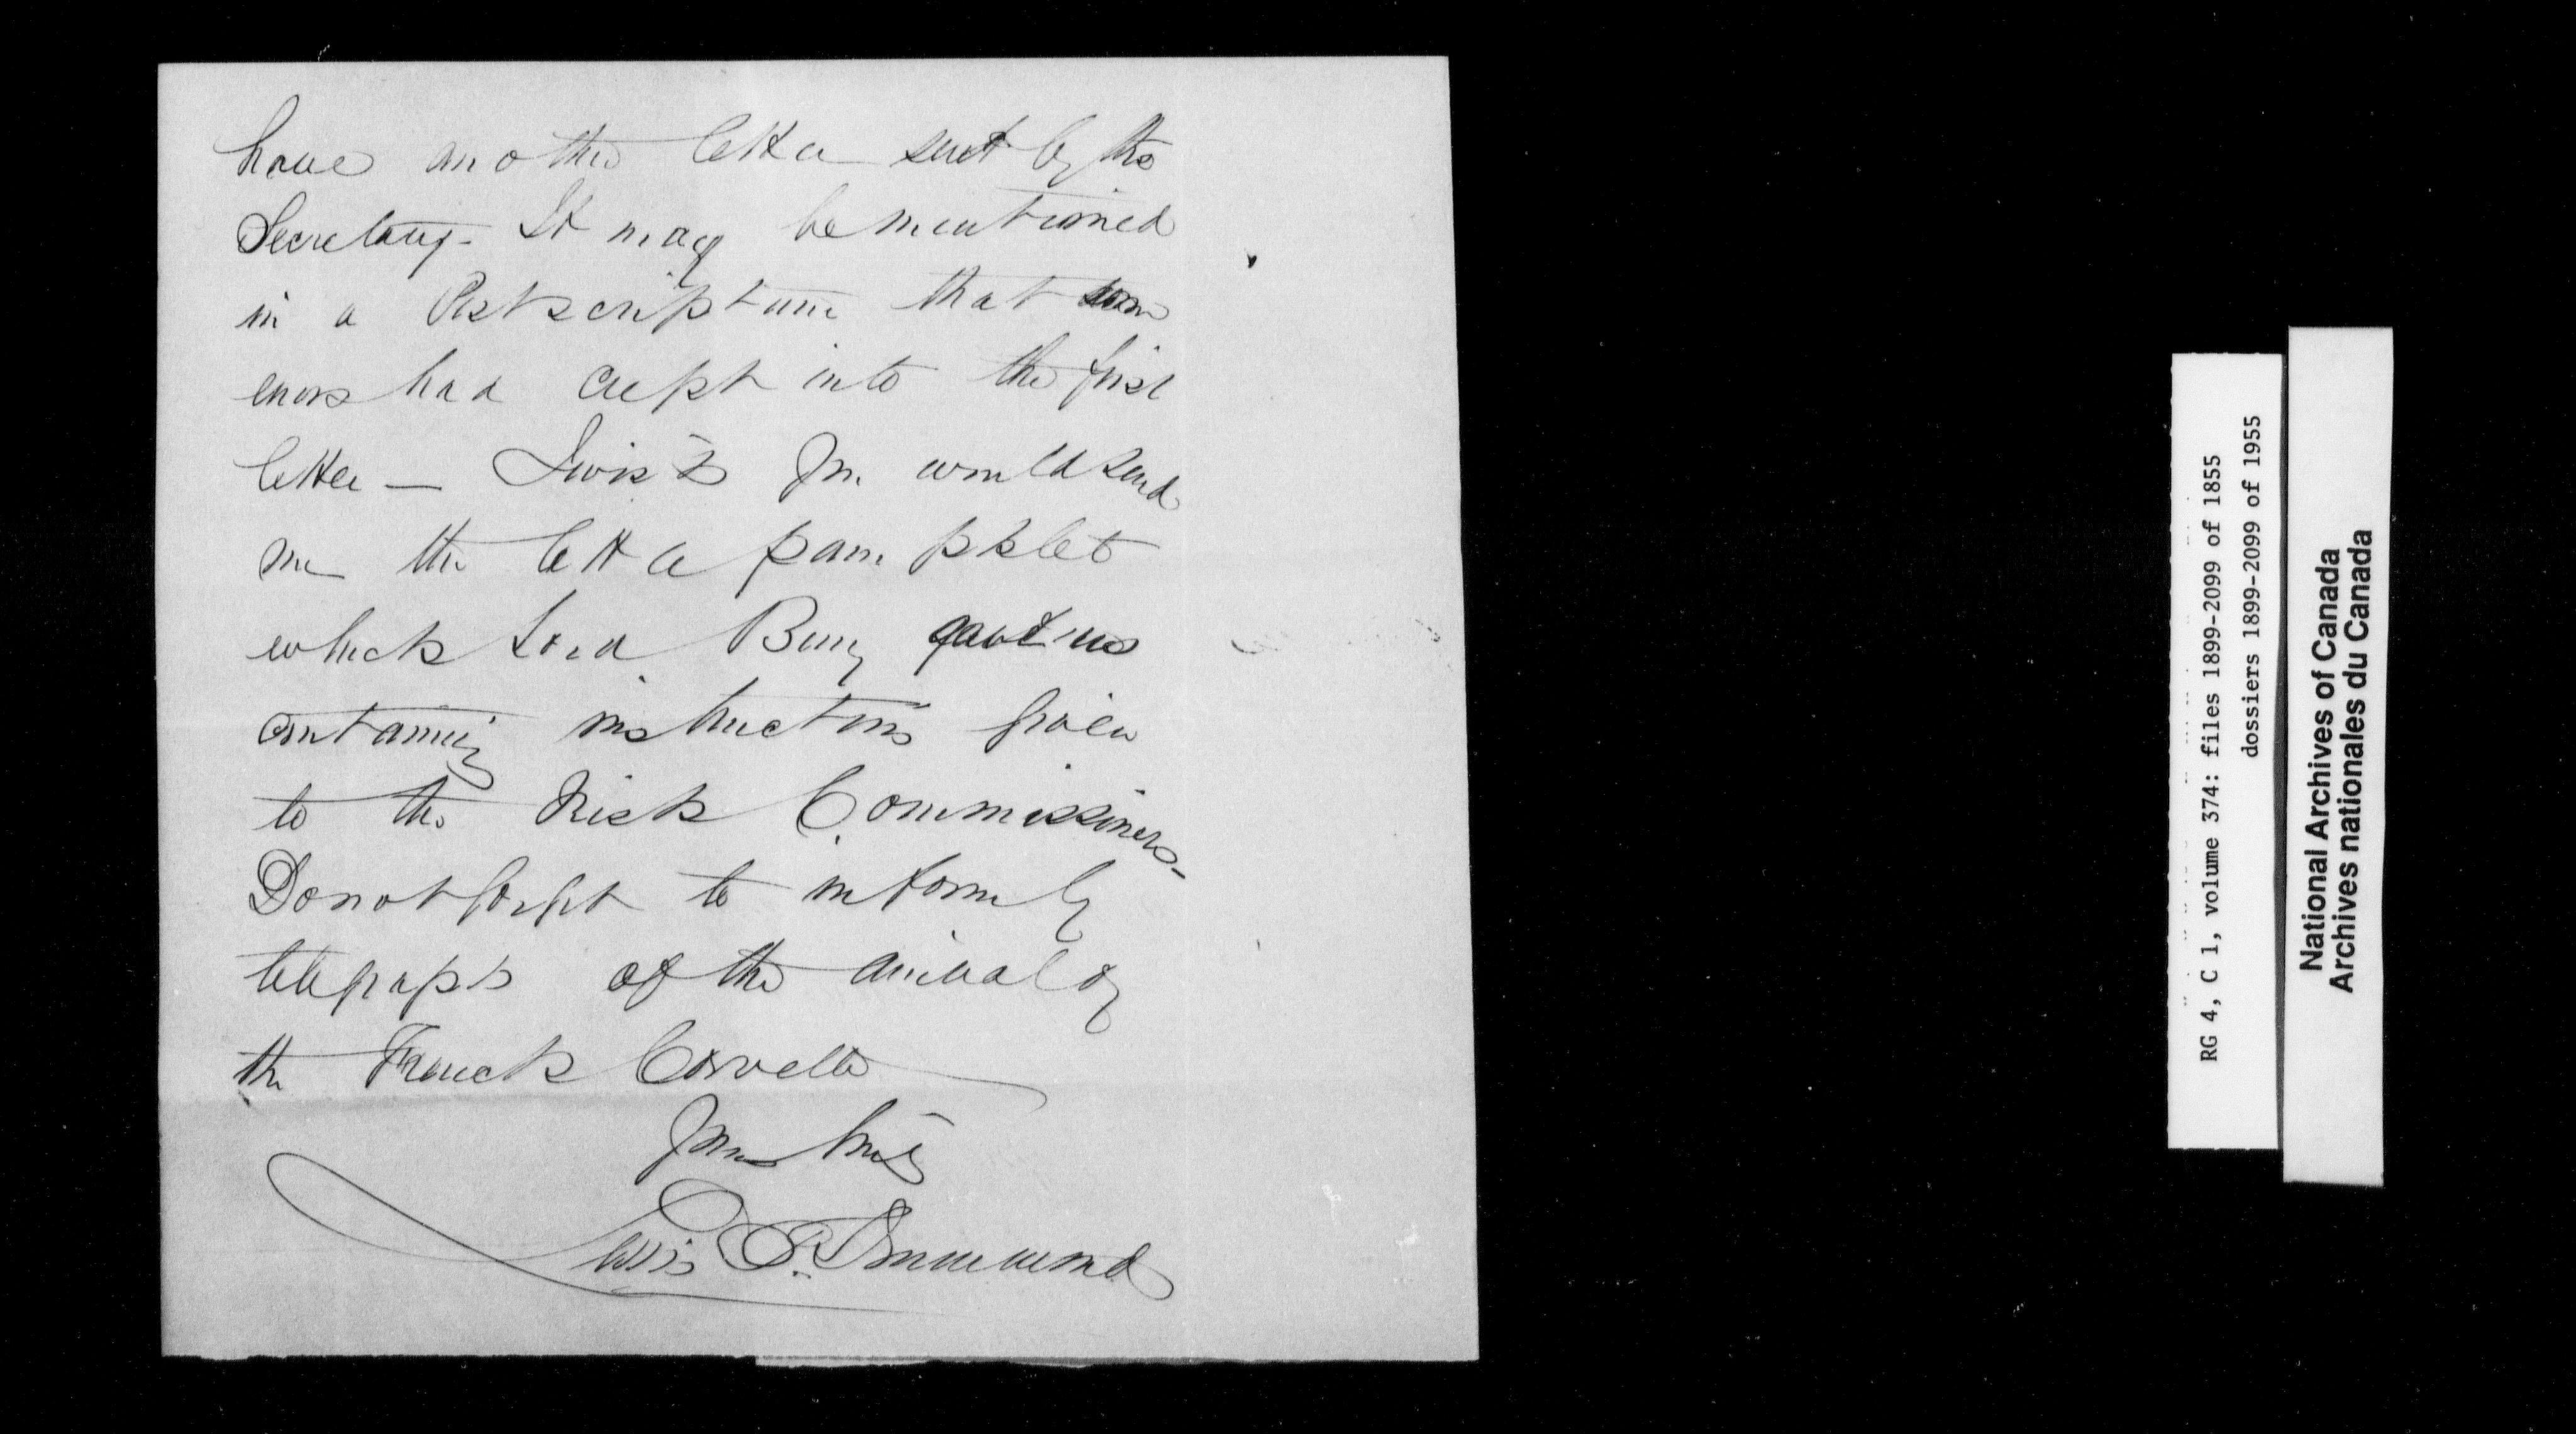 have another letter sent by the
Secretary - It may be mentioned
in a Postscriptum that some
errors had crept into the first
letter - I wish you would send
me the letter pamphlet
which Lord Bury gave us
containing instructions given
to the Irish Commissioners -
Do not forget to inform by
telegraph of the arrival of
the French Corvette
Yours truly
Lewis T. Drummond
RG 4, C 1, volume 374: files 1899-2099 of 1855
dossiers 1899-2099 of 1955
National Archives of Canada
Archives nationales du Canada